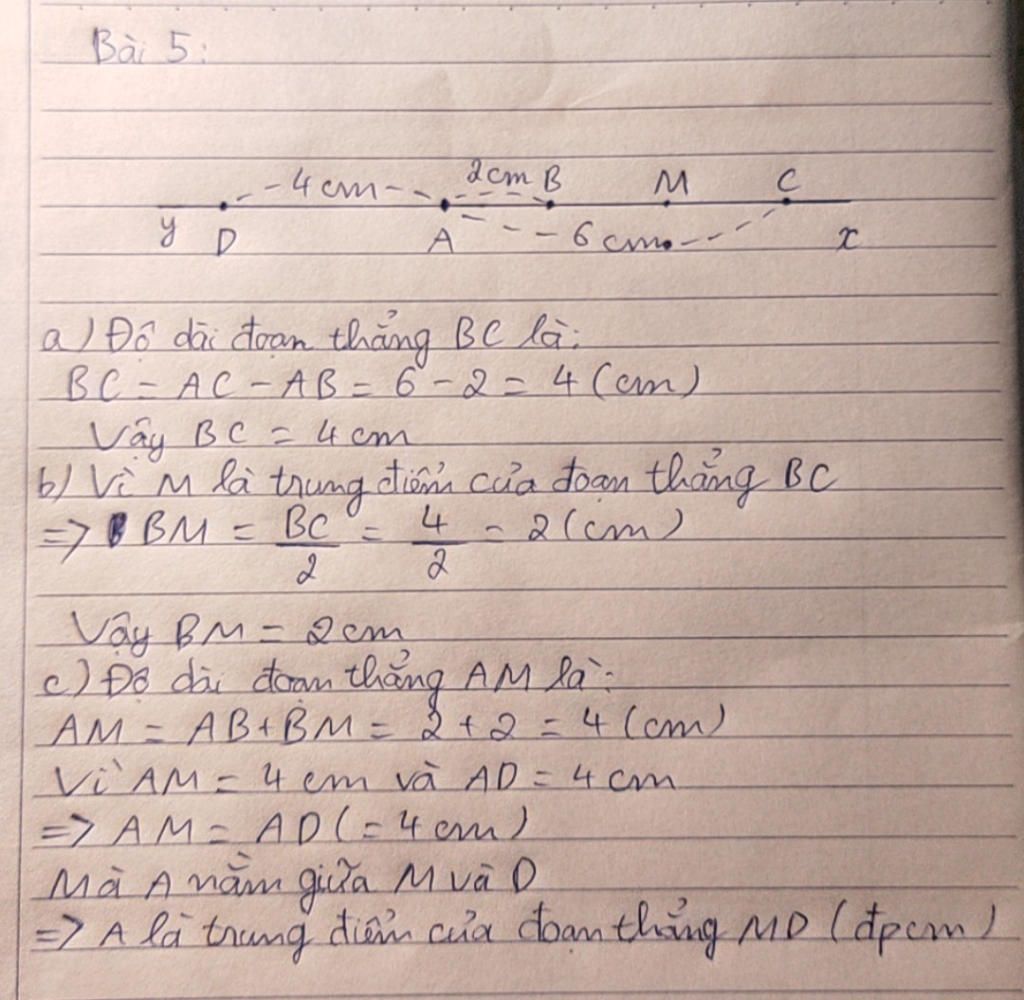 Bài 5:
4cm 2cm B M C
y D A 6 cm x
a) Độ dài đoạn thẳng BC là:
BC = AC - AB = 6 - 2 = 4 (cm)
Vậy BC = 4 cm
b) Vì M là trung điểm của đoạn thẳng BC
=> BM = BC/2 = 4/2 = 2 (cm)
Vậy BM = 2cm
c) Độ dài đoạn thẳng AM là:
AM = AB + BM = 2 + 2 = 4 (cm)
Vì AM = 4 cm và AD = 4 cm
=> AM = AD (= 4 cm)
Mà A nằm giữa M và D
=> A là trung điểm của đoạn thẳng MD (đpcm)